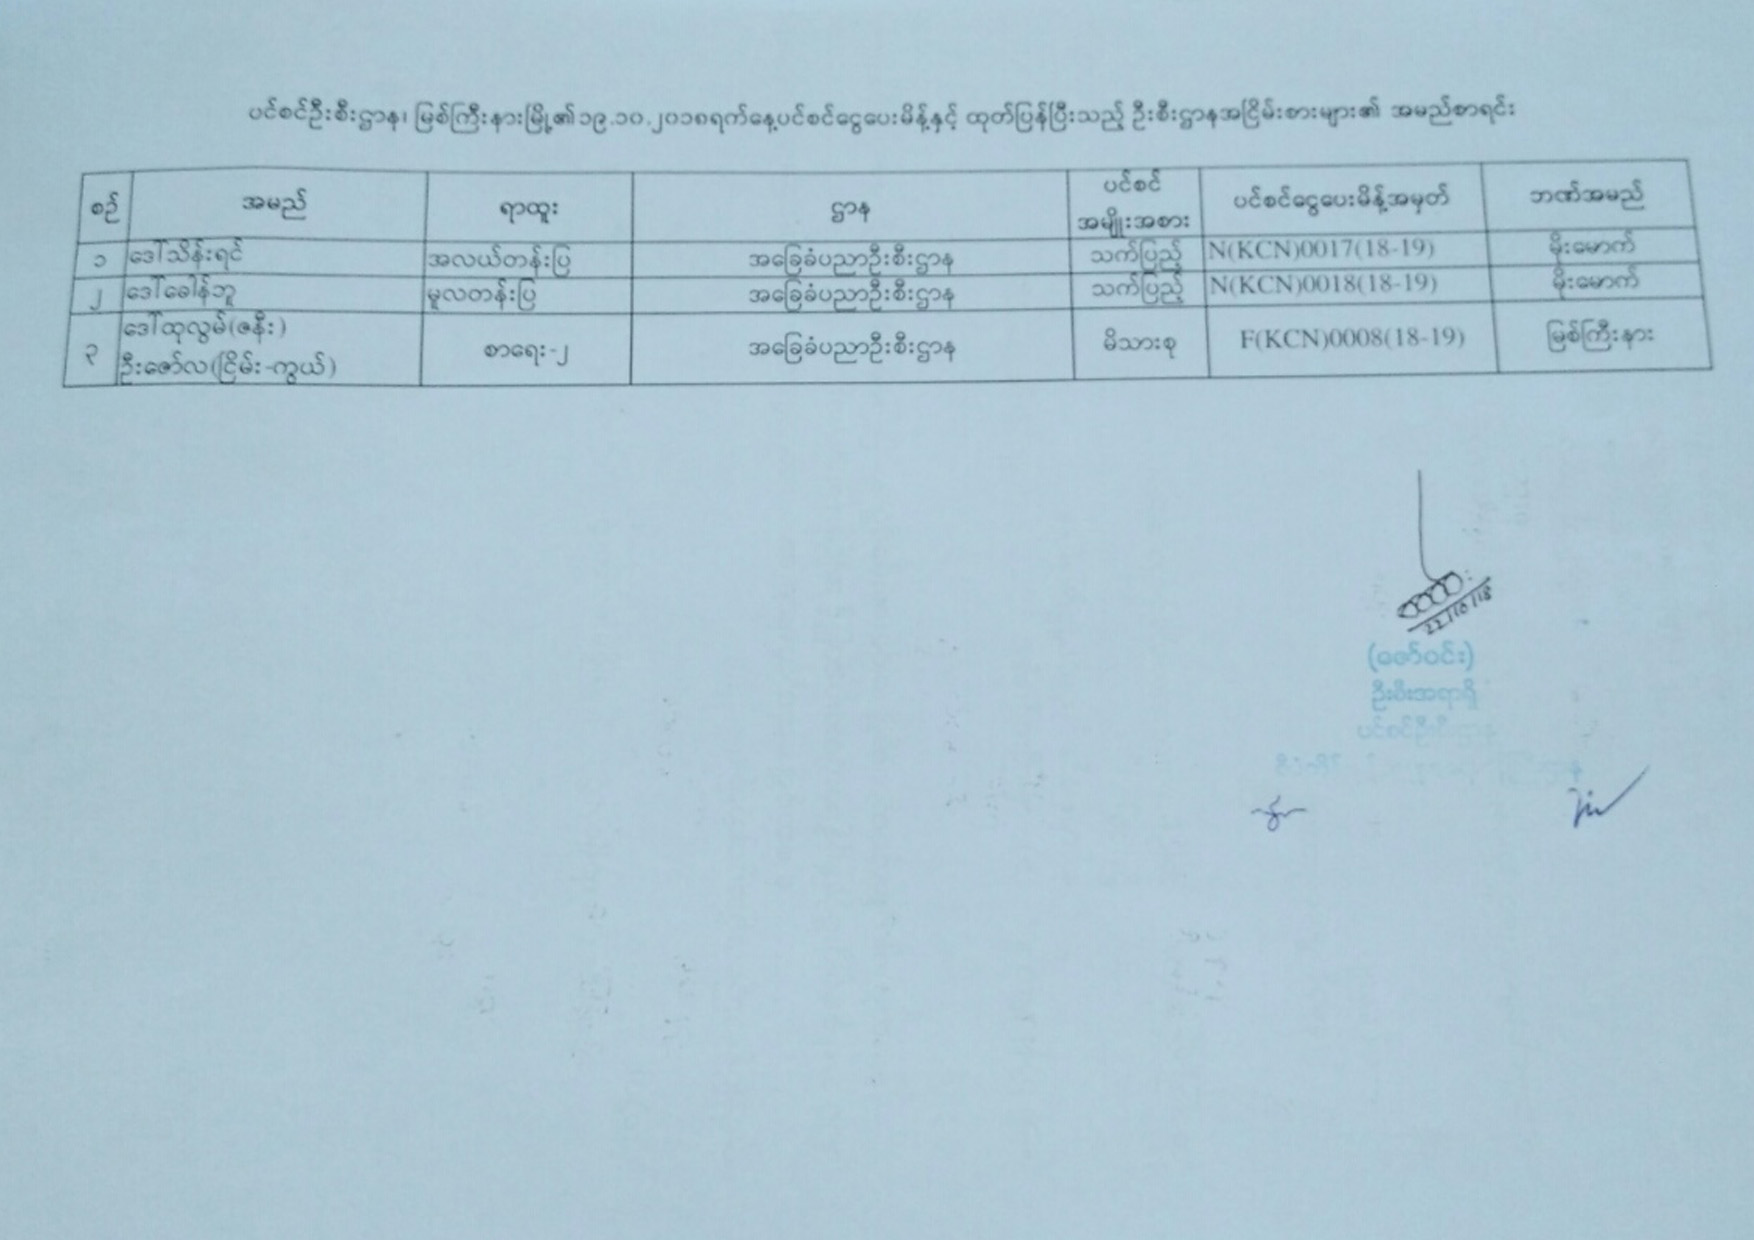 ပင်စင်ဦးစီးဌာန၊ မြစ်ကြီးနားမြို့၏၁၉.၁၀.၂၀၁၈ရက်နေ့ပင်စင်ငွေပေးမိန့်နှင့် ထုတ်ပြန်ပြီးသည့် ဦးစီးဌာနအငြိမ်းစားများ၏ အမည်စာရင်း
စဉ် အမည် ရာထူး ဌာန ပင်စင် အမျိုးအစား ပင်စင်ငွေပေးမိန့်အမှတ် ဘဏ်အမည်
၁ ဒေါ်သိန်းရင် အလယ်တန်းပြ အခြေခံပညာဦးစီးဌာန သက်ပြည့် N(KCN)0017(18-19) မိုးမောက်
၂ ဒေါ်ခေါန်ဘူ မူလတန်းပြ အခြေခံပညာဦးစီးဌာန သက်ပြည့် N(KCN)0018(18-19) မိုးမောက်
၃ ဒေါ်ထုလွမ်(ဇနီး) ဦးဇော်လ(ငြိမ်း-ကွယ်) စာရေး-၂ အခြေခံပညာဦးစီးဌာန မိသားစု F(KCN)0008(18-19) မြစ်ကြီးနား
22/10/18
(ဇော်ဝင်း)
ဦးစီးအရာရှိ
ပင်စင်ဦးစီးဌာန